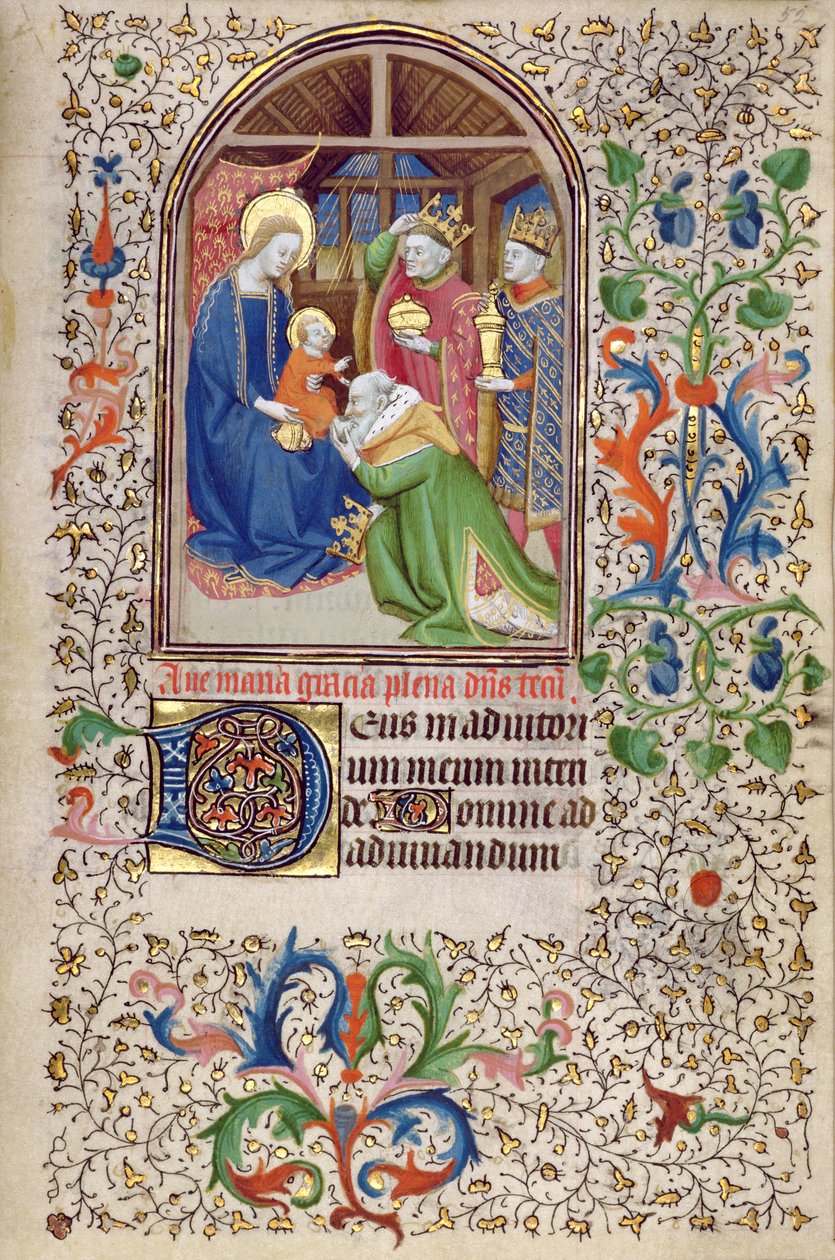 52
Aue maria gracia plena dñs tecũ.
Deus in adiutori
um meum inten
de Domine ad
adiuuandum